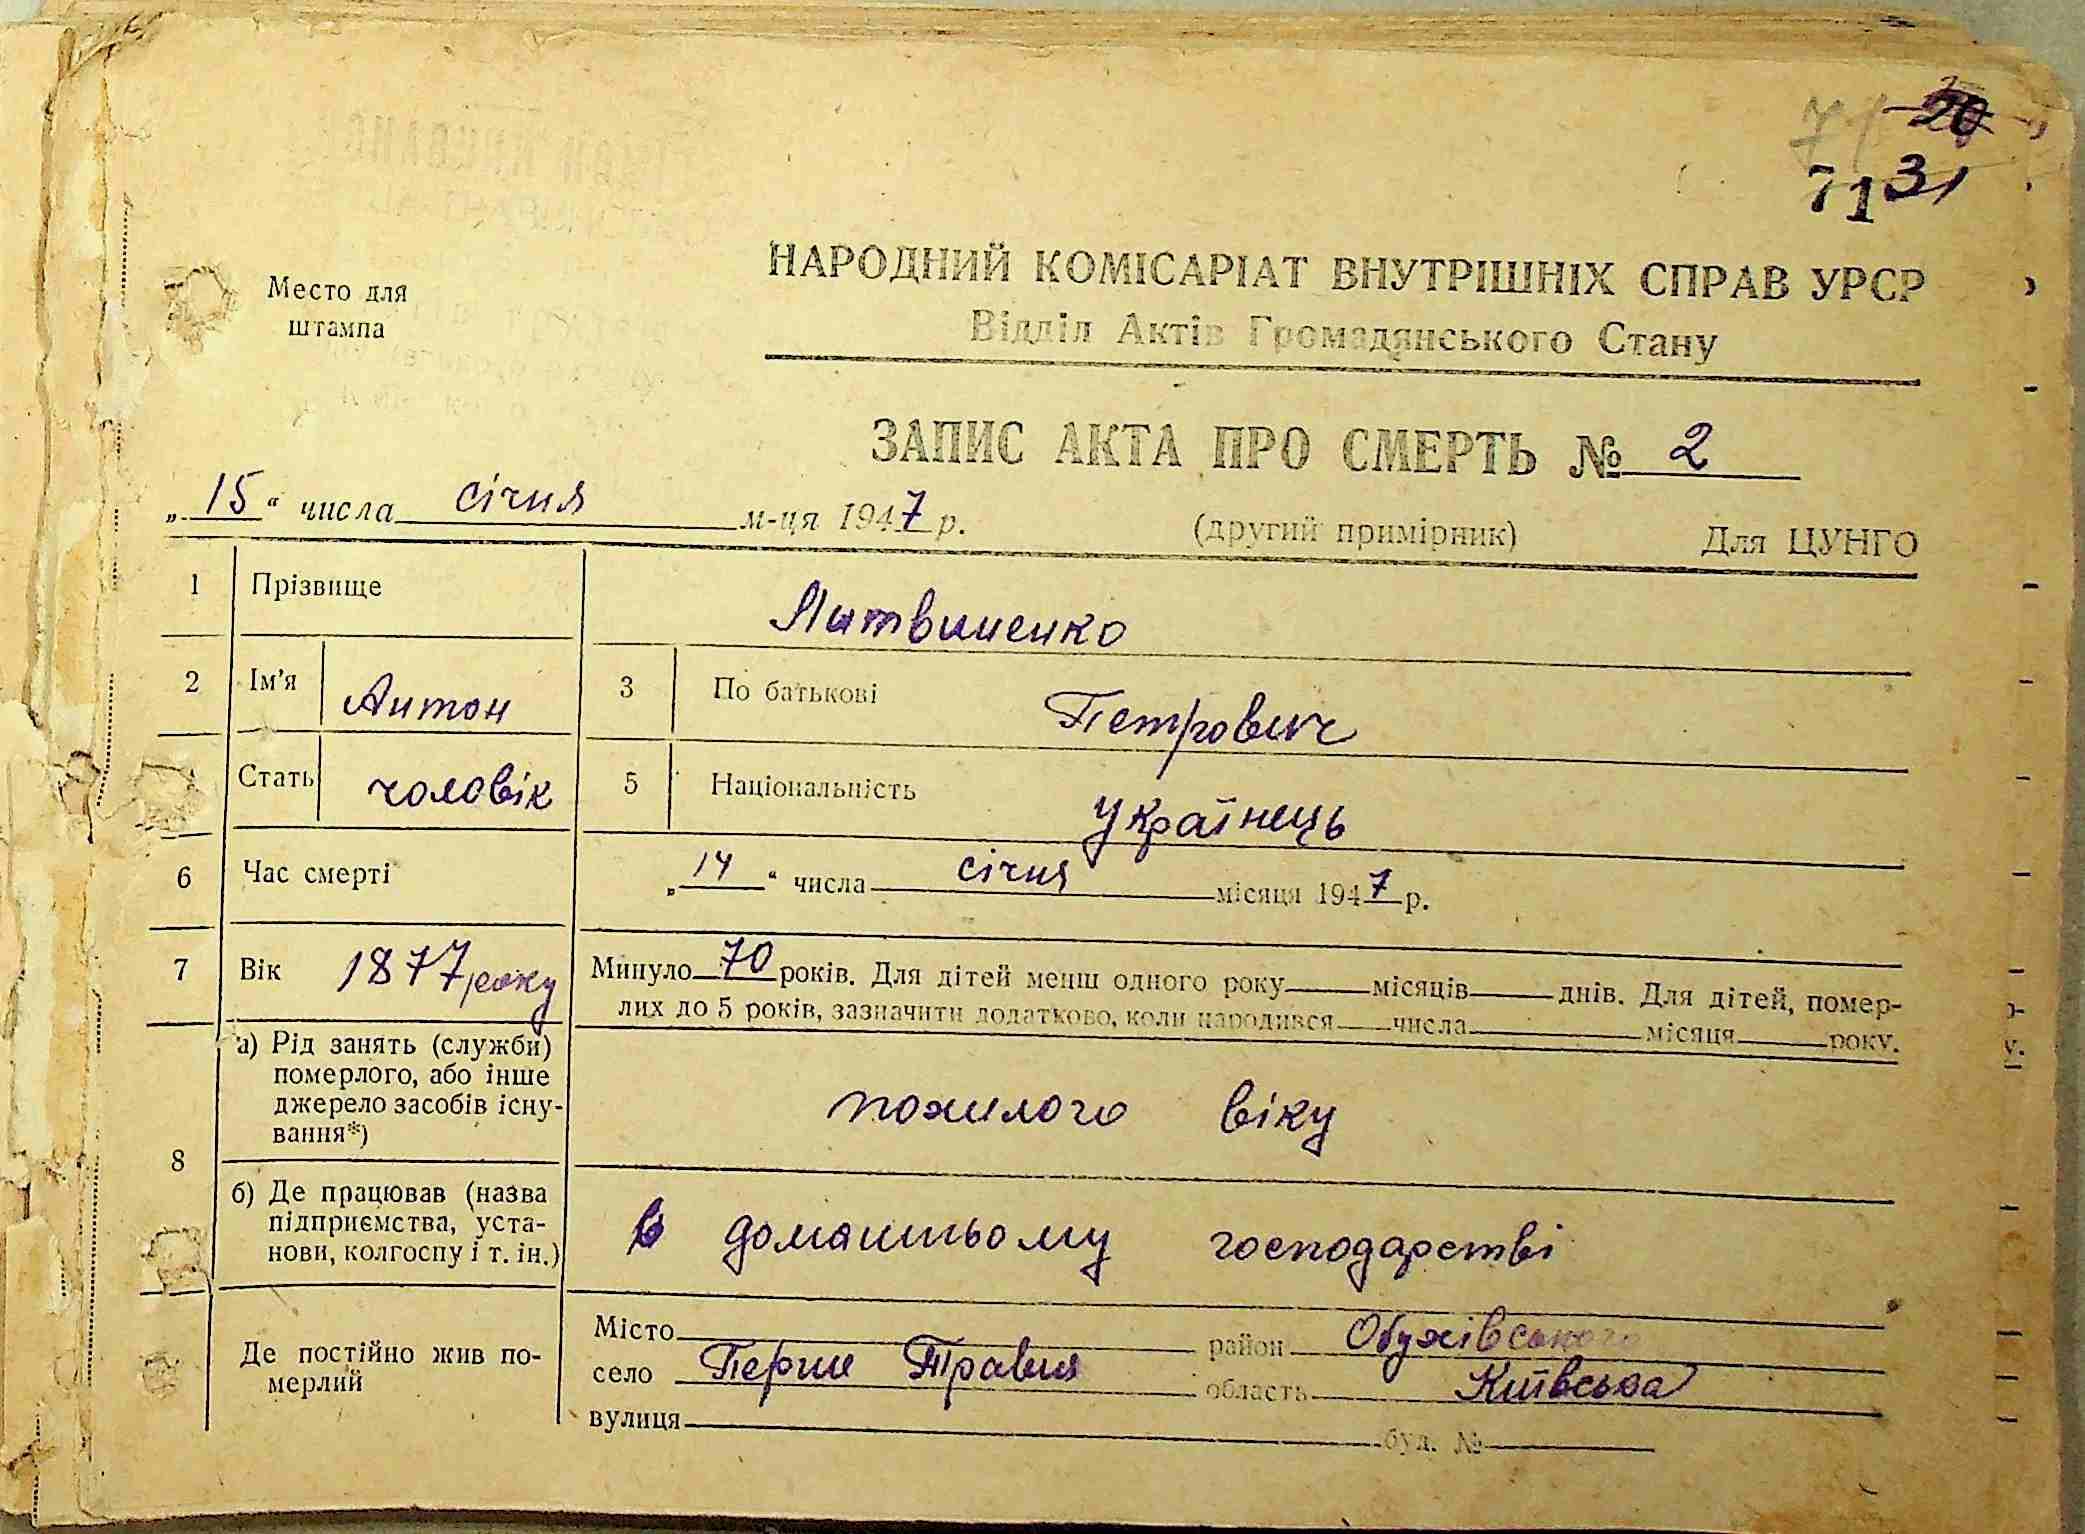 20
71
7131
Место для
штампа
НАРОДНИЙ КОМІСАРІАТ ВНУТРІШНІХ СПРАВ УРСР
Відділ Актів Громадянського Стану
ЗАПИС АКТА ПРО СМЕРТЬ № 2
„15“ числа січня м-ця 1947 р.
(другий примірник) Для ЦУНГО
1 Прізвище Литвиненко
2 Ім'я Антон 3 По батькові Петрович
Стать чоловік 5 Національність українець
6 Час смерті „14“ числа січня місяця 1947 р.
7 Вік 1877 року Минуло 70 років. Для дітей менш одного року місяців днів. Для дітей, помер-
лих до 5 років, зазначити додатково, коли народився числа місяця року.
8
а) Рід занять (службі)
померлого, або інше
джерело засобів існу-
вання*)
похилого віку
б) Де працював (назва
підприємства, уста-
нови, колгоспу і т. ін.)
в домашньому господарстві
Де постійно жив по-
мерлий
Місто район Обухівського
село Перше Травня область Київська
вулиця буд. №